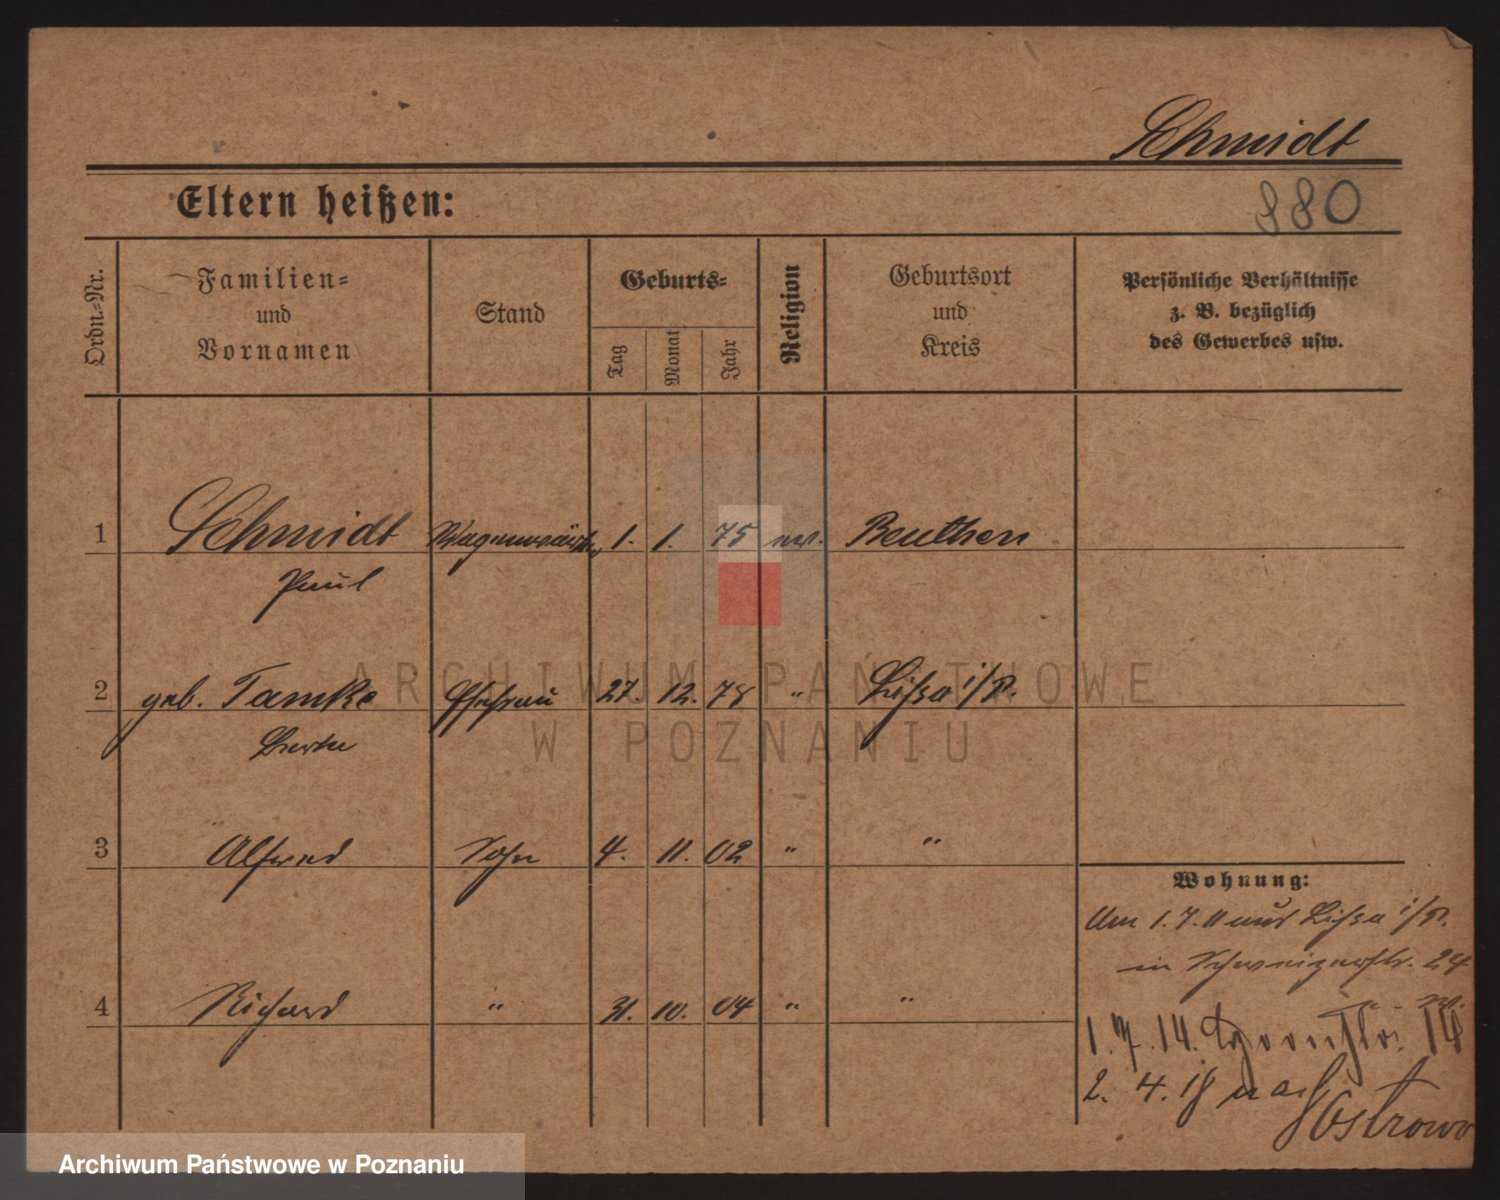 Schmidt
Eltern heißen:
880
Ordn.-Nr.
Familien-
und
Vornamen
Stand
Geburts-
Tag
Monat
Jahr
Religion
Geburtsort
und
Kreis
Persönliche Verhältnisse
z. B. bezüglich
des Gewerbes usw.
1 Schmidt Wagenwärter 1. 1. 75 ev. Beuthen
Paul
2 geb. Tamke Ehefrau 27. 12. 78 " Lissa i/P.
3 Alfred Sohn 4. 11. 02 " "
Wohnung:
Am 1.7.11 aus Lissa i/P.
in Schweizerstr. 24
4 Richard " 31. 10. 04 " "
1.7.14.
2. 4. 18 nach
Ostrowo
ARCHIWUM PAŃSTWOWE
W POZNANIU
Archiwum Państwowe w Poznaniu